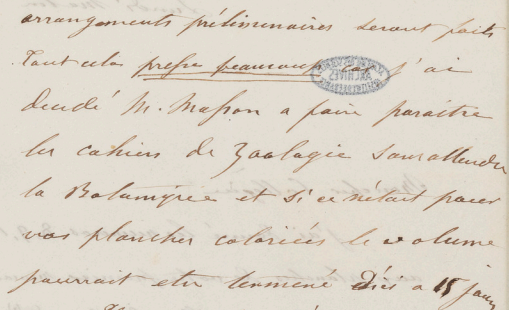 arrangements préliminaires seront faits
Tout cela presse beaucoup car j'ai
décidé M. Masson a faire paraître
les cahiers de Zoologie sans attendre
la Botanique et si ce n'était pour
vos planches coloriées le volume
pourrait etre terminé d'ici a 15 jours